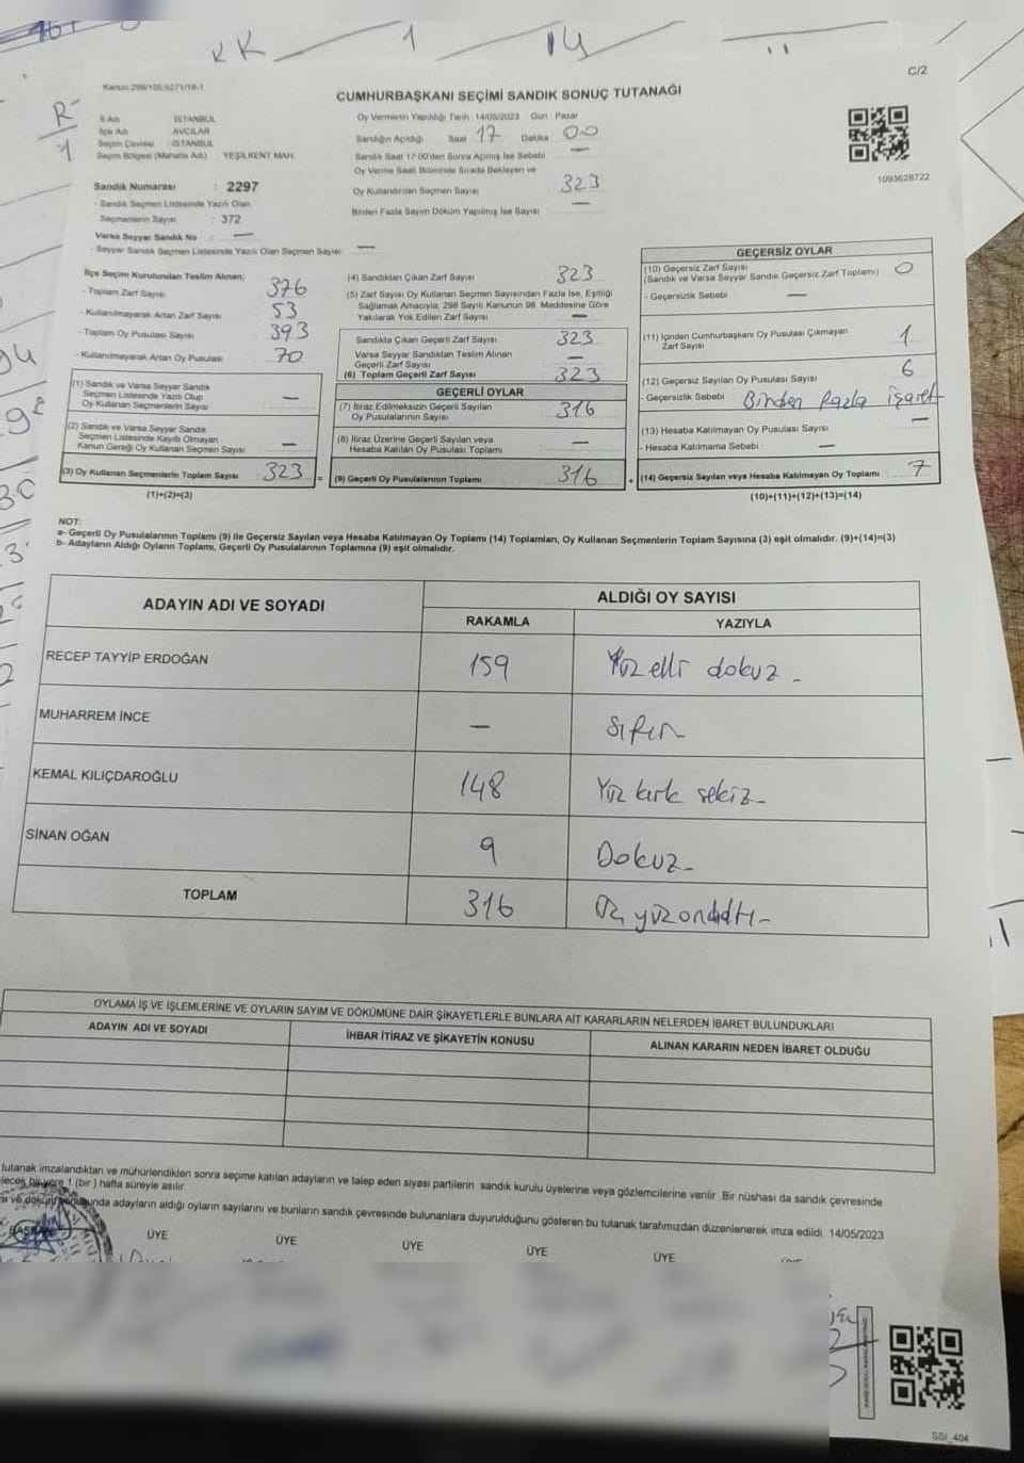 KK 1 14 11
R-
1
C/2
Kanun:298/105,6271/18-1
CUMHURBAŞKANI SEÇİMİ SANDIK SONUÇ TUTANAĞI
İli Adı İSTANBUL
İlçe Adı AVCILAR
Seçim Çevresi : İSTANBUL
Seçim Bölgesi (Mahalle Adı) YEŞİLKENT MAH.
Sandık Numarası : 2297
- Sandık Seçmen Listesinde Yazılı Olan
Seçmenlerin Sayısı : 372
Varsa Seyyar Sandık No : —
- Seyyar Sandık Seçmen Listesinde Yazılı Olan Seçmen Sayısı —
Oy Vermenin Yapıldığı Tarih 14/05/2023 Gün : Pazar
Sandığın Açıldığı Saat 17 Dakika 00
Sandık Saat 17:00'den Sonra Açılmış İse Sebebi —
Oy Verme Saati Bitiminde Sırada Bekleyen ve
Oy Kullandırılan Seçmen Sayısı 323
Birden Fazla Sayım Döküm Yapılmış İse Sayısı —
1093628722
İlçe Seçim Kurulundan Teslim Alınan;
- Toplam Zarf Sayısı 376
- Kullanılmayarak Artan Zarf Sayısı 53
- Toplam Oy Pusulası Sayısı 393
- Kullanılmayarak Artan Oy Pusulası 70
(1) Sandık ve Varsa Seyyar Sandık
Seçmen Listesinde Yazılı Olup
Oy Kullanan Seçmenlerin Sayısı —
(2) Sandık ve Varsa Seyyar Sandık
Seçmen Listesinde Kayıtlı Olmayan
Kanun Gereği Oy Kullanan Seçmen Sayısı —
(3) Oy Kullanan Seçmenlerin Toplam Sayısı 323 =
(1)+(2)=(3)
(4) Sandıktan Çıkan Zarf Sayısı 323
(5) Zarf Sayısı Oy Kullanan Seçmen Sayısından Fazla İse, Eşitliği
Sağlamak Amacıyla, 298 Sayılı Kanunun 98. Maddesine Göre
Yakılarak Yok Edilen Zarf Sayısı —
Sandıkta Çıkan Geçerli Zarf Sayısı 323
Varsa Seyyar Sandıktan Teslim Alınan
Geçerli Zarf Sayısı —
(6) Toplam Geçerli Zarf Sayısı 323
GEÇERLİ OYLAR
(7) İtiraz Edilmeksizin Geçerli Sayılan
Oy Pusulalarının Sayısı 316
(8) İtiraz Üzerine Geçerli Sayılan veya
Hesaba Katılan Oy Pusulası Toplamı —
(9) Geçerli Oy Pusulalarının Toplamı 316 +
GEÇERSİZ OYLAR
(10) Geçersiz Zarf Sayısı
(Sandık ve Varsa Seyyar Sandık Geçersiz Zarf Toplamı) 0
- Geçersizlik Sebebi —
(11) İçinden Cumhurbaşkanı Oy Pusulası Çıkmayan
Zarf Sayısı 1
(12) Geçersiz Sayılan Oy Pusulası Sayısı 6
- Geçersizlik Sebebi Birden Fazla işaret
(13) Hesaba Katılmayan Oy Pusulası Sayısı —
- Hesaba Katılmama Sebebi —
(14) Geçersiz Sayılan veya Hesaba Katılmayan Oy Toplamı 7
(10)+(11)+(12)+(13)=(14)
NOT:
a- Geçerli Oy Pusulalarının Toplamı (9) ile Geçersiz Sayılan veya Hesaba Katılmayan Oy Toplamı (14) Toplamları, Oy Kullanan Seçmenlerin Toplam Sayısına (3) eşit olmalıdır. (9)+(14)=(3)
b- Adayların Aldığı Oyların Toplamı, Geçerli Oy Pusulalarının Toplamına (9) eşit olmalıdır.
ADAYIN ADI VE SOYADI ALDIĞI OY SAYISI
RAKAMLA YAZIYLA
RECEP TAYYİP ERDOĞAN 159 Yüz elli dokuz -
MUHARREM İNCE — Sıfır
KEMAL KILIÇDAROĞLU 148 Yüz kırk sekiz -
SİNAN OĞAN 9 Dokuz -
TOPLAM 316 Üç yüz onaltı -
OYLAMA İŞ VE İŞLEMLERİNE VE OYLARIN SAYIM VE DÖKÜMÜNE DAİR ŞİKAYETLERLE BUNLARA AİT KARARLARIN NELERDEN İBARET BULUNDUKLARI
ADAYIN ADI VE SOYADI İHBAR İTİRAZ VE ŞİKAYETİN KONUSU ALINAN KARARIN NEDEN İBARET OLDUĞU
tutanak imzalandıktan ve mühürlendikten sonra seçime katılan adayların ve talep eden siyasi partilerin sandık kurulu üyelerine veya gözlemcilerine verilir. Bir nüshası da sandık çevresinde
1 (bir) hafta süreyle asılır.
adayların aldığı oyların sayılarını ve bunların sandık çevresinde bulunanlara duyurulduğunu gösteren bu tutanak tarafımızdan düzenlenerek imza edildi. 14/05/2023
BAŞKAN ÜYE ÜYE ÜYE ÜYE ÜYE
SSI_404